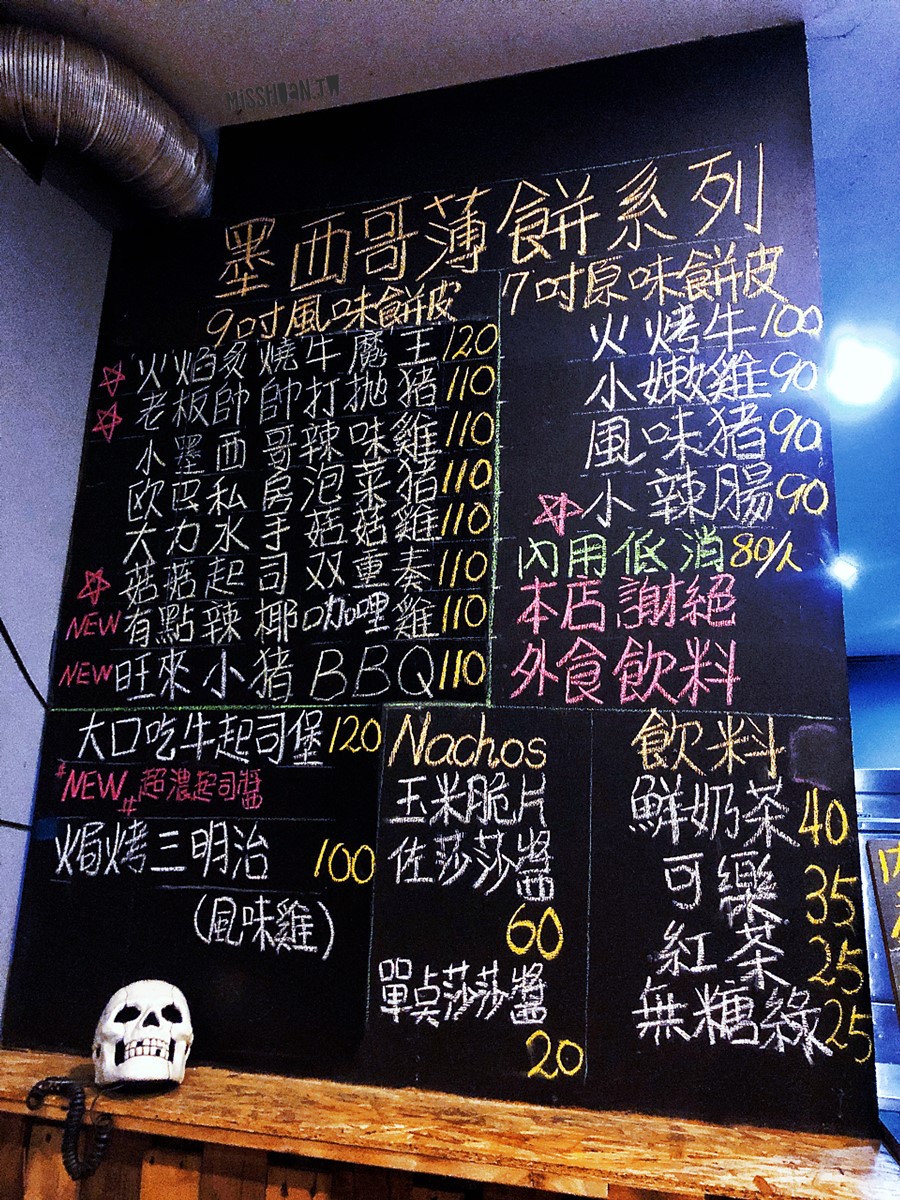 MISSHUAN.TW
墨西哥薄餅系列
9吋風味餅皮
火焰炙燒牛魔王 120
老板帥帥打拋豬 110
小墨西哥辣味雞 110
欧巴私房泡菜豬 110
大力水手菇菇雞 110
菇菇起司双重奏 110
NEW 有點辣椰咖哩雞 110
NEW 旺來小豬BBQ 110
7吋原味餅皮
火烤牛 100
小嫩雞 90
風味豬 90
小辣腸 90
內用低消80/人
本店謝絕
外食飲料
大口吃牛起司堡 120
#NEW# 超濃起司醬
焗烤三明治 100
(風味雞)
Nachos
玉米脆片
佐莎莎醬
60
單点莎莎醬
20
飲料
鮮奶茶 40
可樂 35
紅茶 25
無糖綠 25